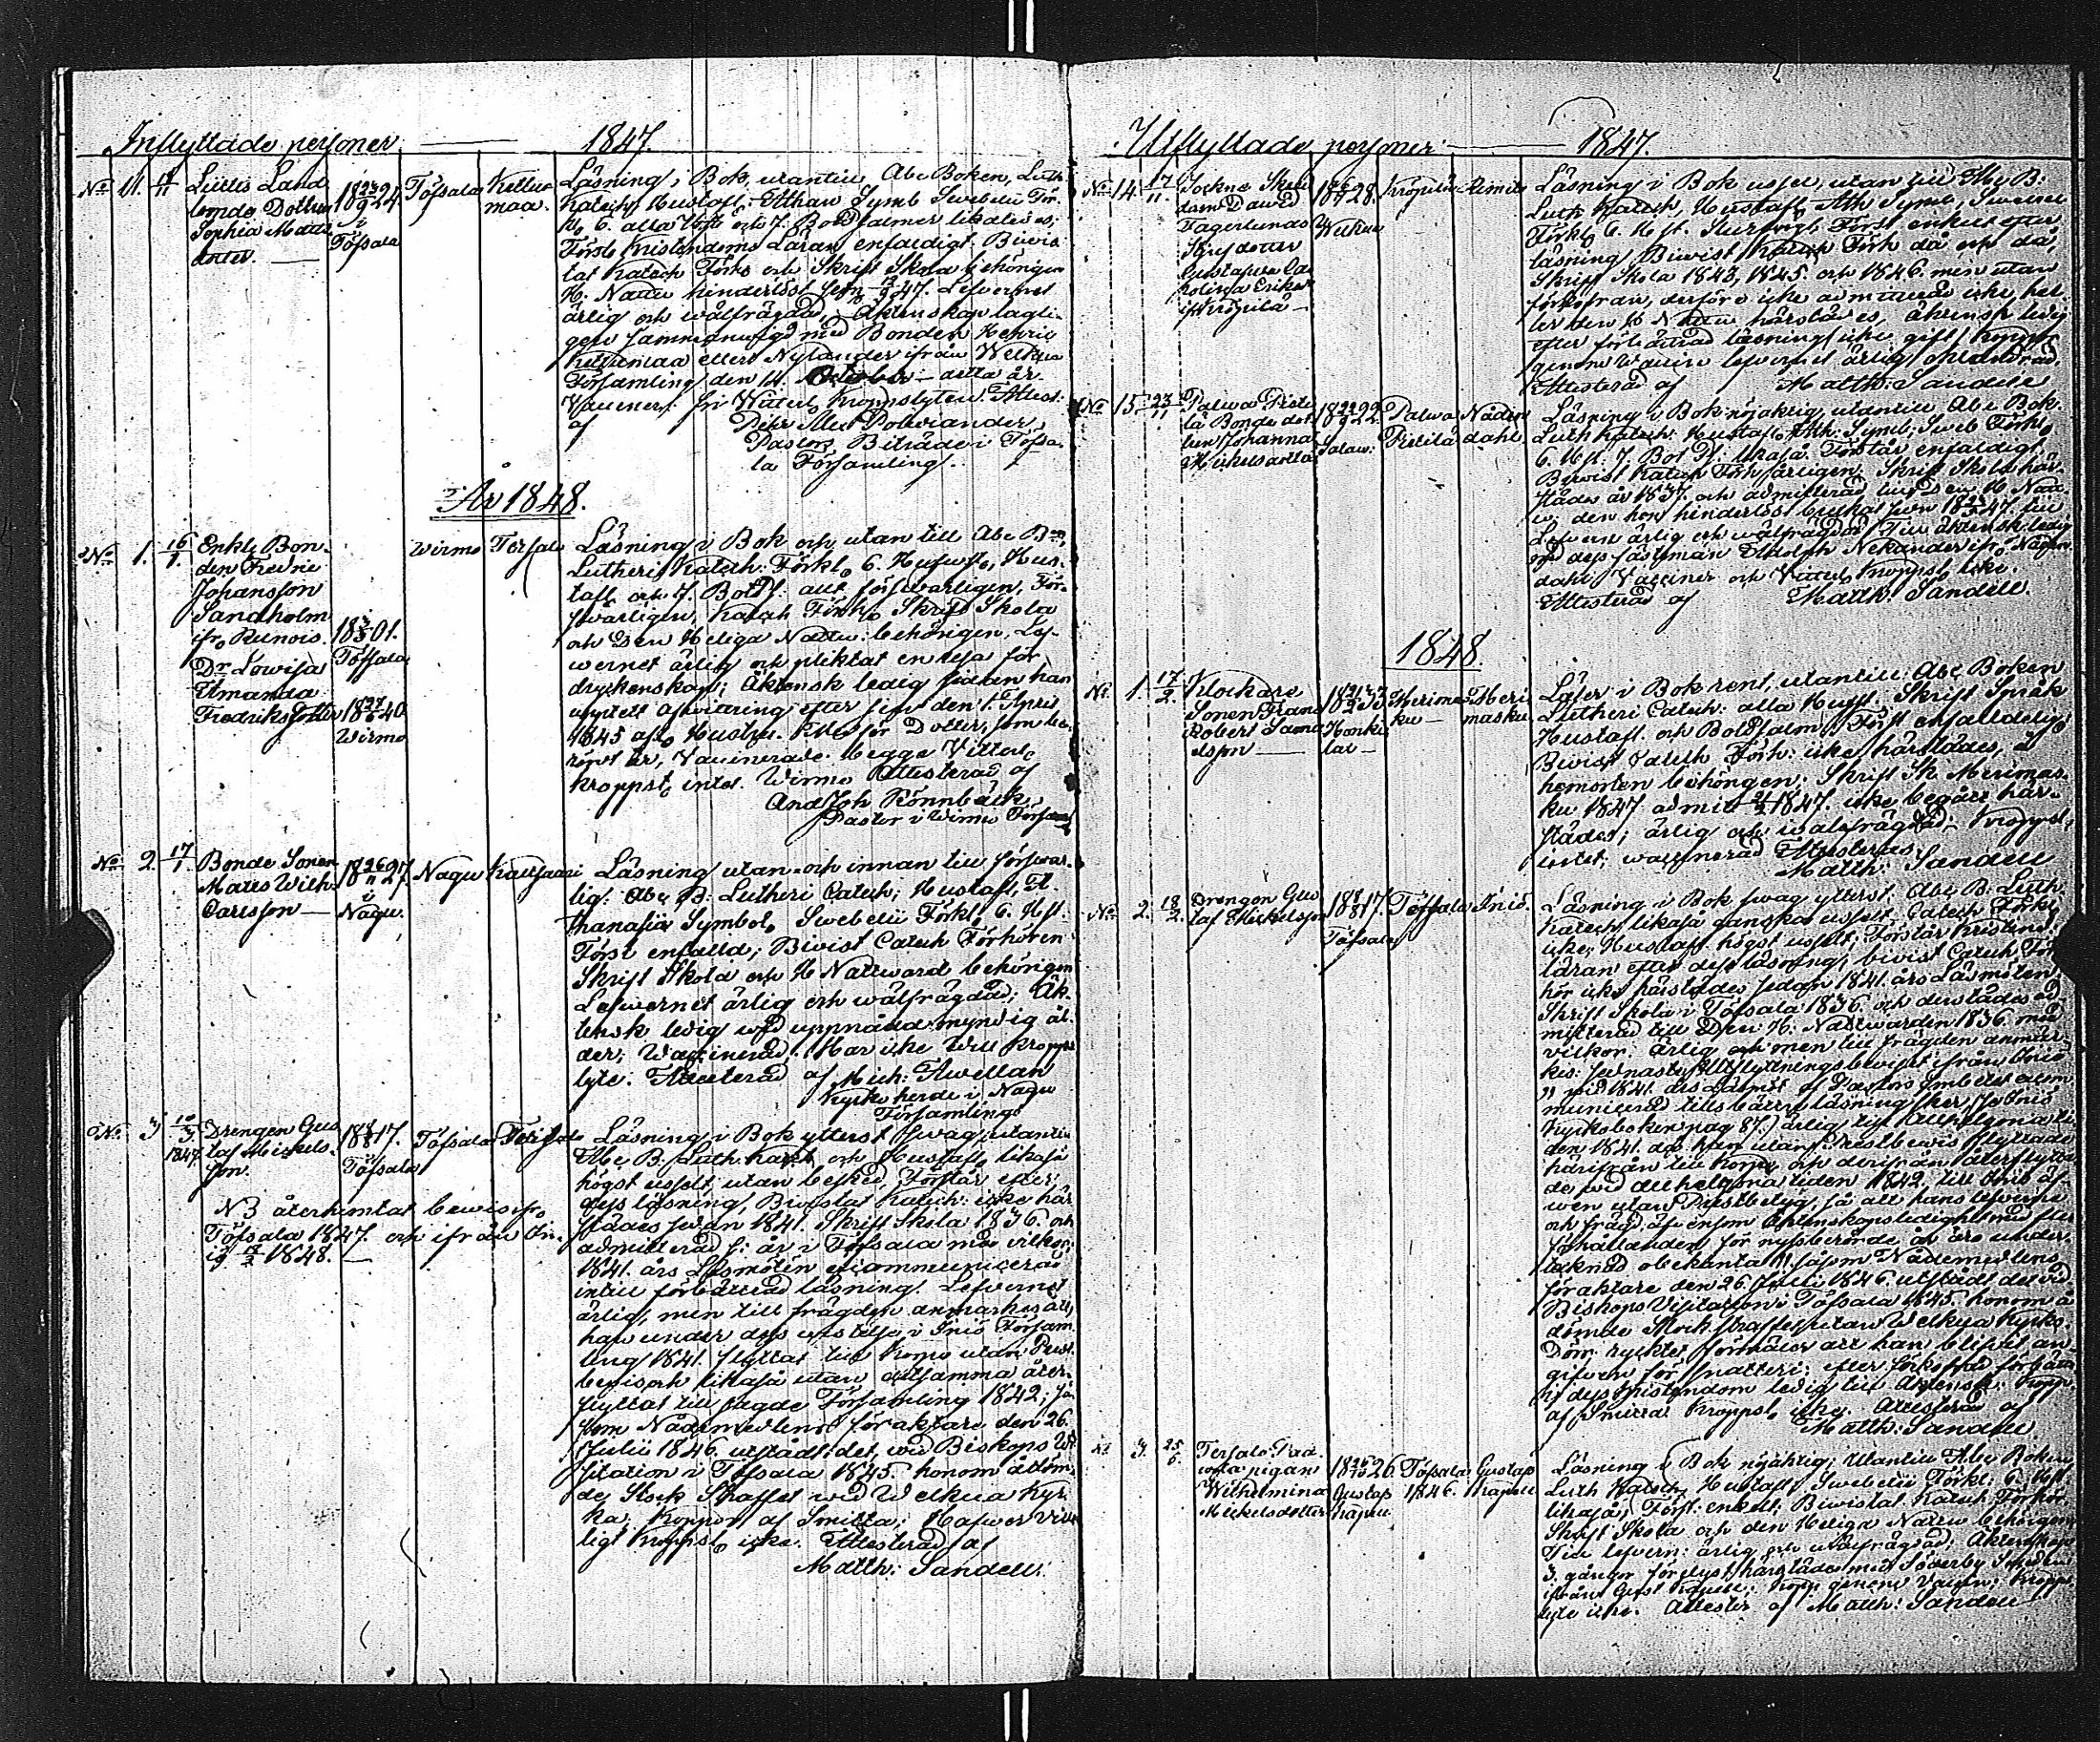 Inflyttade personer 1847.
No 11.
Lielles Land
bonde Dottren
Sophia Matts
dotter.
18 23/9 24.
i
Töfsala
Töfsala
Kellu
maa.
Läsning i Bok, utantill Abc Boken, Luth.
Katech. Hustafl. Athan Symb Swebelii För
kl. 6. alla Hft och 7. Botpsalmer likaledes;
Först. Kristendoms Läran enfaldigt. Biwis
tat Katech Förhö. och Skrift Skola behörigen
H. Nattw. hinderlöst sedn 47. Lefvernet
ärlig och wälfrägdad, Äktenskap lagli-
gen sammanwigd med Bonden Henric
Kellumaa ellers Nylander ifrån Welkua
Församling den 11. October detta år.
Vaccinerad fri Wittert. Kroppslyten. Attest.
af Pehr Alb. Polviander
Pastors Biträde i Töfsa-
la Församling.
År 1848.
No 1. 16/1.
Enkl. Bon-
den Fredric
Johansson
Sandholm
ifr. Runois.
Dr Lowisa
Amanda
Fredriksdotter
18 01.
Töfsala
18 27/6 40
Wirmo
Wirmo
Tersalo
Läsning i Bok och utan till Abc Bok,
Lutheri Katech. Förkl. 6. Hufwst. Hus-
tafl. och 7. Botps. allt försvarligen, För-
svarligen, Katech Förhör, Skrift Skola
och Den Heliga Nattw. behörigen, Lef-
wernet ärlig och pliktat en resa för
dryckenskap; Äktensk ledig sedan han
upptett afwittring efter sin den 1. April
1845 afl. Hustru.
röpt är, Vaccinerade begge Vitterl.
kroppsl. intet. Wirmo Attesterad af
And Joh Rönnbäck
Pastor i Wirmo Försam
No 2. 17/1.
Bonde Sonen
Matts Wilh.
Carlsson
18 26/11 27.
i
Nagu.
Nagu
Kaitsaari
Läsning utan och innan till förswar-
lig: Abc B. Lutheri Catech; Hustafl, A-
thanasii Symbol, Swebelii Förkl. 6. Hft.
Först enfalld; Biwist Catech Förhören
Skrift Skola och H Nattward behörigen
Lefwernet ärlig och wälfrägdad; Äk-
tensk ledig wid uppnådd myndig ål-
der; Waccinerad. Har icke Witt kropps
lyte. Attesterad af Mich: Awellan
Kyrkoherde i Nagu
Församling
No. 3 1847.
Drengen Gus
taf Mickels-
son.
18 8/8 17.
Töfsala
Töfsala
Tersalo
N 3 återhemtat bewis ifr.
Töfsala 1847. och ifrån Ini-
ö 18/2 1848.
Läsning i Bok ytterst swag, utantill
Abc B. Luth. Kat. och Hustafl. likaså
högst uselt utan besked, Förstår efter
dess läsning, Biwistat Katech: icke här
städes sedan 1841. Skrift Skola 1836. och
admitterad s: år i Töfsala med vilkor;
1841. års Läsmöten excommunicerad
intill förbättrad läsning. Lefvernet
ärlig, men till frägden anmärkes att
han under dess wistelse i Iniö Försam
ling 1841. flyttat till Korpo utan Prest
bewis och likaså utan detsamma åter-
flyttat till sagde Församling 1842; så
som Nådemedlens föraktare den 26.
Julii 1846. utstådt det, wid Biskops Wi-
sitation i Töfsala 1845. honom ådöm-
de Stock Straffet wid Welkua kyr-
ka, Koppor af Smitta; Hafwer Vitter
ligt kroppsl. icke. Attesterad af
Matth: Sandell.
Utflyttade personer 1847.
No 14 17/11.
Sockne Skräd
daren Dawid
Fagerlunds
Styfdotter
Gustafwa Ca
rolina Eriksd
ifr. Krögilä
28.
Welkua
Krögilä
Rimito
Läsning i Bok usel, utan till Abc B.
Luth Katech, Hustafl Ath Symb, Swebelii
Förkl. 6. Hft. Förstr. enkelt efter
läsning, Biwist Katech Förh då och då,
Skrift Skola 1843, 1845. och 1846. men utan
förkofran, derföre icke admitterad icke hel-
ler den H Nattw härstädes, äktensk ledig
efter förbättrad läsning icke gift, Koppor
genom Vaccin lefvernet ärlig oklandrad.
Attesterad af Matth: Sandell
No. 15. 23/11
Palwa Piete
lä Bonde dot
tren Johanna
Mickelsdotter
22.
Palwa
Pietilä
Nåden
dahl
Läsning i Bok nöjaktig, utantill Abc Bok.
Luth Katech. Hustafl Ath: Symb; Sweb Förkl.
6. Hft. 7. Bot Ps. likaså. Förstår enfaldigt
Biwist Katech Förh färligen. Skrift Skola här-
städes år 1837. och admitterad till Den H Natt
w. den hon hinderlöst brukat sedn 18 47. till
Lefvern ärlig och wälfrägdad; Till äktensk ledig
med dess fästeman Adolph Nekander ifr. Nåden
dahl. Vacciner och Vitterl. Kroppsl. icke.
Attesterad af Matth: Sandell.
1848.
No 1. 17/2.
Klockare
Sonen Frans
Robert Samu
elsson
33
Merimas
ku
Meri
masku
Läser i Bok rent, utantill: Abc Boken
Lutheri Catech: alla Hufft. Skrift Språk
Hustafl. och Botpsalm: Först enfalldelig:
Biwist Catech Förh: icke härstädes, å
hemorten behörigen: Skrift Sk. Merimas-
ku 1847 admit 1847. icke begått här-
städes; ärlig och wälfrägdad; Kroppsl.
intet; waccinerad Attesteras
Matth: Sandell
No. 2. 18/2.
Drengen Gus
taf Mickelsson
18 8/8 17.
Töfsala
Töfsala
Iniö.
Läsning i Bok swag ytterst, Abc B. Luth
Katech likaså ganska uselt, Catech Förkl
icke, Hustafl. högst uselt; Förstår Kristend
läran efter dess läsning, biwist Catech: För
hör icke härstädes sedan 1841. års Läsmöten,
Skrift Skola i Töfsala 1836 och derstädes ad-
mitterad till Den H. Nattwarden 1836 med
vilkor. Ärlig och men till frägden anmär-
kes: senaste utflyttningsbewiset ifrån Iniö
" wid 1841. års Läsmöt. af Pastors Embetet excom
municerad tills bättre läsning (ser
kyrkoboken pag 87.) ärlig
den 1841. då han utan Prestbewis flyttade
härifrån till Korpo och derifrån återflytta-
de wid allhelgona tiden 1842, till Iniö äf-
wen utan Prestbetyg, så att hans lefverne
och frägd äfvensom Äktenskapsledighet med flera
förhållanden för nyssberörde år äro under-
tecknad obekanta!!! såsom Nådemedlens
föraktare den 26 Julii 1846. utstådt det wid
Biskops Visitation i Töfsala 1845. honom å-
dömde Stock straffet utan Welkua kyrko
Dörr. ryktet förmäler att han blifvit an-
gifven för snatteri; efter förkofrad förbättr
if dess Kristendom ledig till Äktensk: Kopp
af Smitta Kroppsl. icke. Attesterad af
Matth: Sandell
3. 25/
Tersalo
pigan
Wilhelmina
Mickelsdotter
26.
Gustaf
Kapell
Töfsala
1846.
Gustaf
Kapell
Läsning i Bok nöjaktig; Utantill Abc Boken
Luth Katech, Hustafl. Swebelii Förkl; 6. Hft.
likaså; Först: enkelt, Biwistat Katech Förhör
Skrift Skola och den Heliga Nattw behörigen
Till lefvern: ärlig och wälfrägdad; Äktenskap
3. gånger förelyst härstädes med
ifrån Gust Kapell; Kopp: genom Vaccin; Kropps
lyte icke. Attester af Matth: Sandell